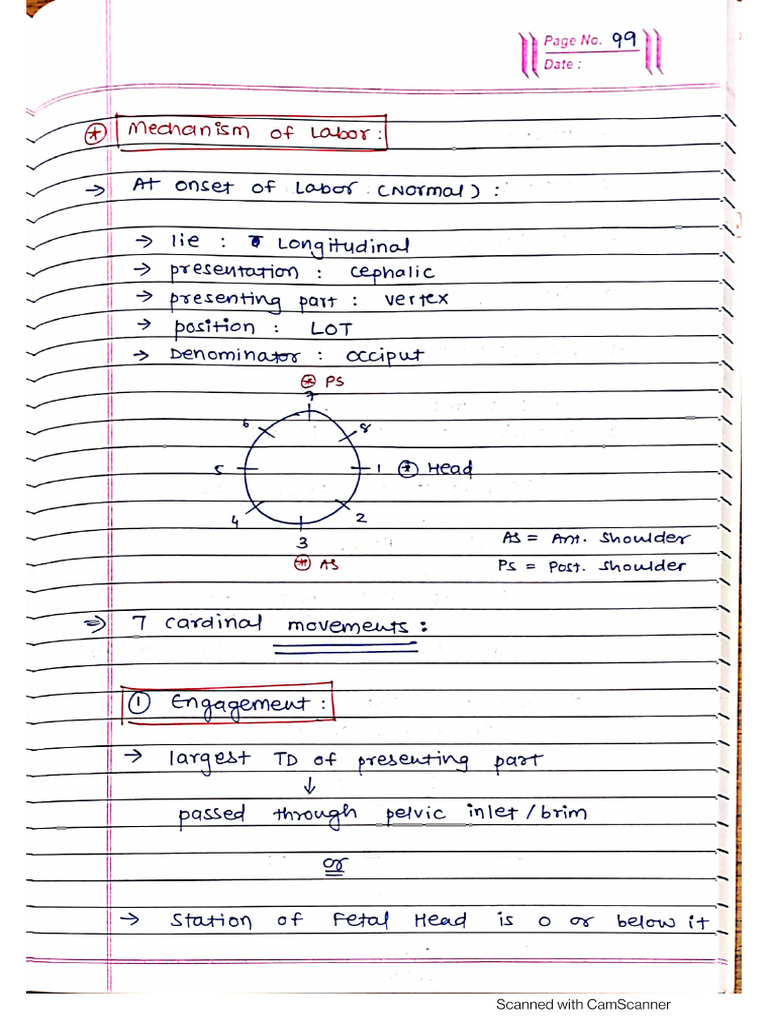 Page No. 99
Date :
* Mechanism of Labor :
→ At onset of Labor (Normal) :
→ lie : Longitudinal
→ presentation : cephalic
→ presenting part : vertex
→ position : LOT
→ Denominator : occiput
* PS
7
6 8
5 1 * Head
4 2
3
AS = Ant. shoulder
* AS
PS = Post. shoulder
⇒ 7 cardinal movements :
① Engagement :
→ largest TD of presenting part
↓
passed through pelvic inlet / brim
or
→ Station of Fetal Head is 0 or below it
Scanned with CamScanner